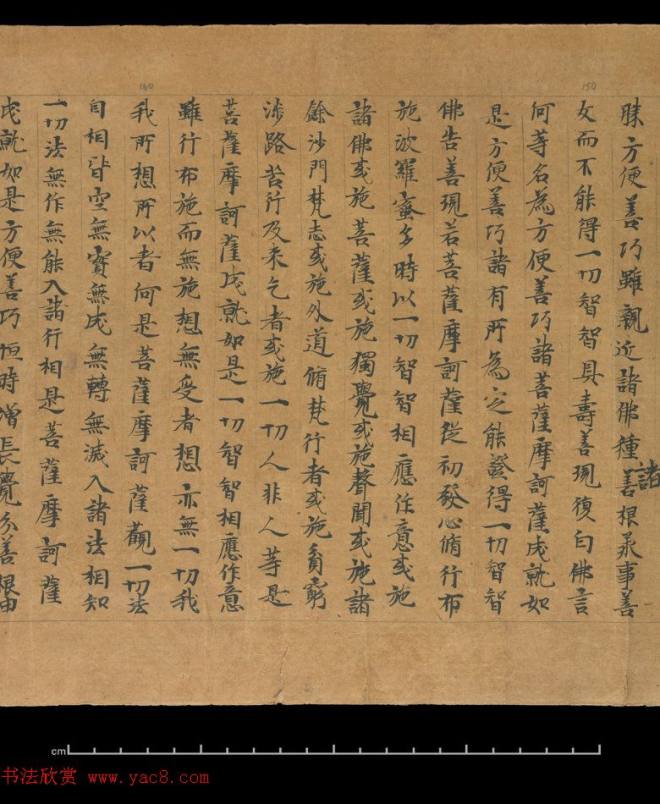 150
140
胅方便善巧雖親近諸佛種諸善根承事善
友而不能得一切智智具壽善現復白佛言
何等名為方便善巧諸菩薩摩訶薩成就如
是方便善巧諸有所為定能證得一切智智
佛告善現若菩薩摩訶薩從初發心脩行布
施波羅蜜多時以一切智智相應作意或施
諸佛或施菩薩或施獨覺或施聲聞或施諸
餘沙門梵志或施外道脩梵行者或施貧窮
涉路苦行及来乞者或施一切人非人等是
菩薩摩訶薩成就如是一切智智相應作意
雖行布施而無施想無受者想亦無一切我
我所想所以者何是菩薩摩訶薩觀一切法
自相皆空無實無成無轉無滅入諸法相知
一切法無作無能入諸行相是菩薩摩訶薩
成就如是方便善巧恒時增長覺分善根由
cm
书法欣赏 www.yac8.com